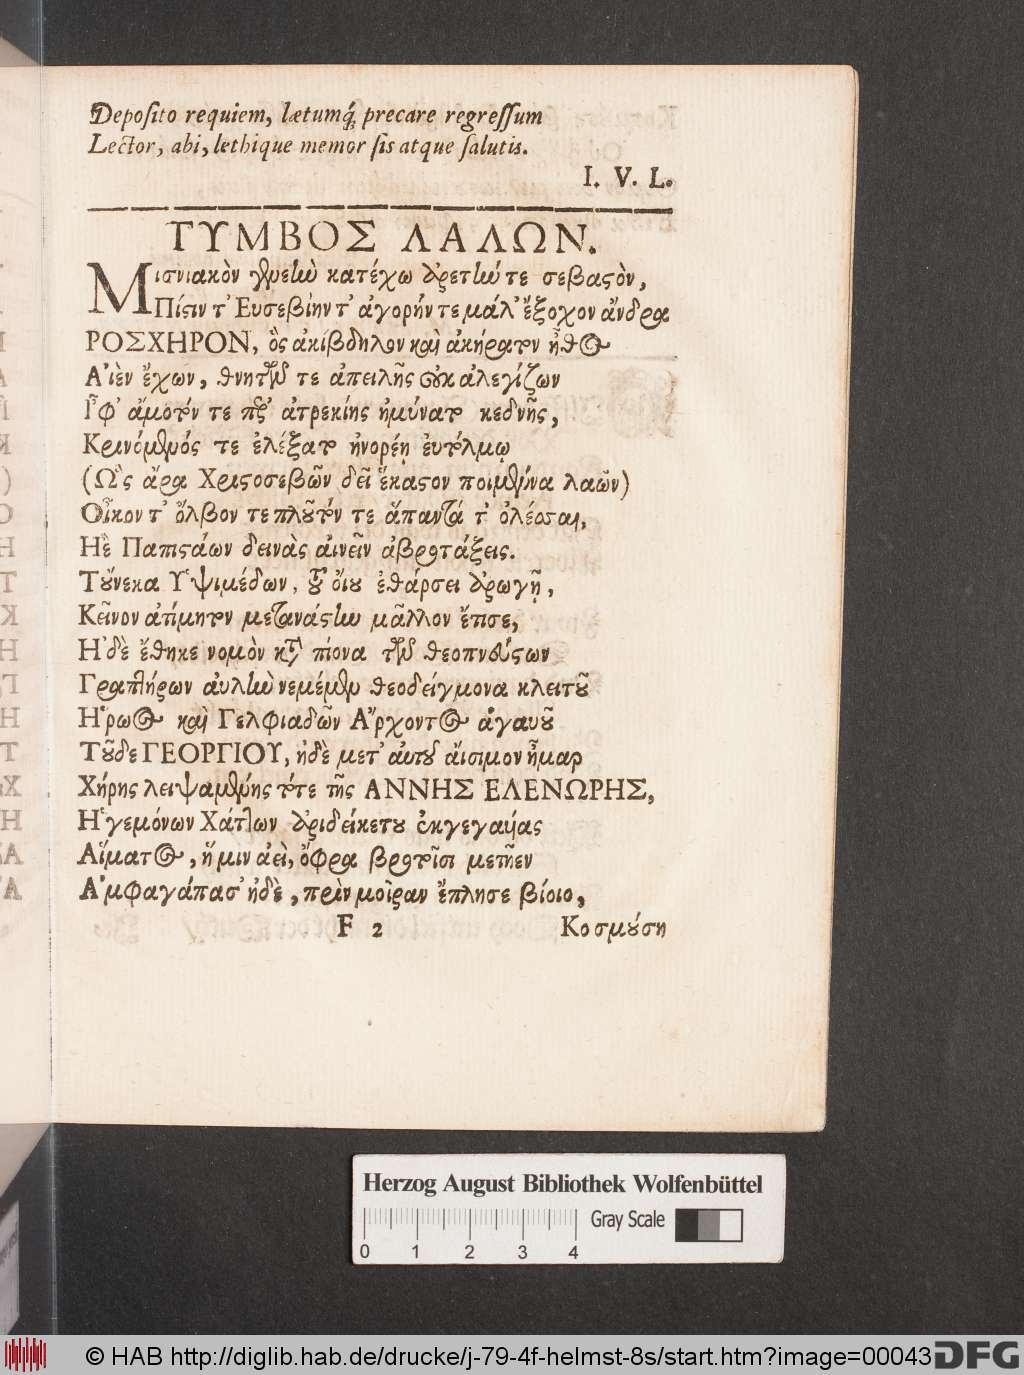 Deposito requiem, lætumq́; precare regressum
Lector, abi, lethique memor sis atque salutis.
I. V. L.
ΤΥΜΒΟΣ ΛΑΛΩΝ.
Μισνιακὸν γενεὴν κατέχω ἀρετήν τε σεβαστὸν,
Πίστιν τ' Ευσεβίην τ' ἀγορήν τε μάλ' ἔξοχον ἄνδρα
ΡΟΣΧΗΡΟΝ, ὃς ἀκίβδηλον καὶ ἀκήρατον ἦθος
Αἰὲν ἔχων, θνητῶν τε ἀπειλῆς οὐκ ἀλεγίζων
Ἶφ' ἄμοτόν τε περ' ἀτρεκίης ἠμύνατο κεδνῆς,
Κρινόμενός τε ἐλέξατο ἠνορέῃ ἐυτόλμῳ
(Ὣς ἄρα Χριστοσεβῶν δεῖ ἕκαστον ποιμένα λαῶν)
Οἶκον τ' ὄλβον τε πλοῦτόν τε ἅπαντά τ' ὀλέσσαι,
Ηὲ Παπιστάων δεινὰς αἰνεῖν ἀβροτάξεις.
Τοὔνεκα Ὑψιμέδων, οὗ οἵου ἐθάρσει ἀρωγῇ,
Κεῖνον ἀτίμητον μετανάστην μᾶλλον ἔτισε,
Ηδὲ ἔθηκε νομὸν κατὰ πίονα τῶν θεοπνεύστων
Γραπτήρων αὐλὴν νεμέμεν θεοδείγμονα κλειτοῦ
Ἥρωος καὶ Γελφιαδῶν Ἄρχοντος ἀγαυοῦ
Τοῦδε ΓΕΩΡΓΙΟΥ, ἠδὲ μετ' αὐτοῦ αἴσιμον ἦμαρ
Χήρης λειψαμένης τότε τῆς ΑΝΝΗΣ ΕΛΕΝΩΡΗΣ,
Ἡγεμόνων Χάττων ἀριδείκετου ἐκγεγαυίας
Αἵματος, ἥ μιν ἀεὶ, ὄφρα βροτοῖσι μετῆεν
Ἀμφαγάπασ' ἠδὲ, πρὶν μοῖραν ἔπλησε βίοιο,
F 2
Κοσμούση
Herzog August Bibliothek Wolfenbüttel
Gray Scale
0 1 2 3 4
© HAB http://diglib.hab.de/drucke/j-79-4f-helmst-8s/start.htm?image=00043
DFG